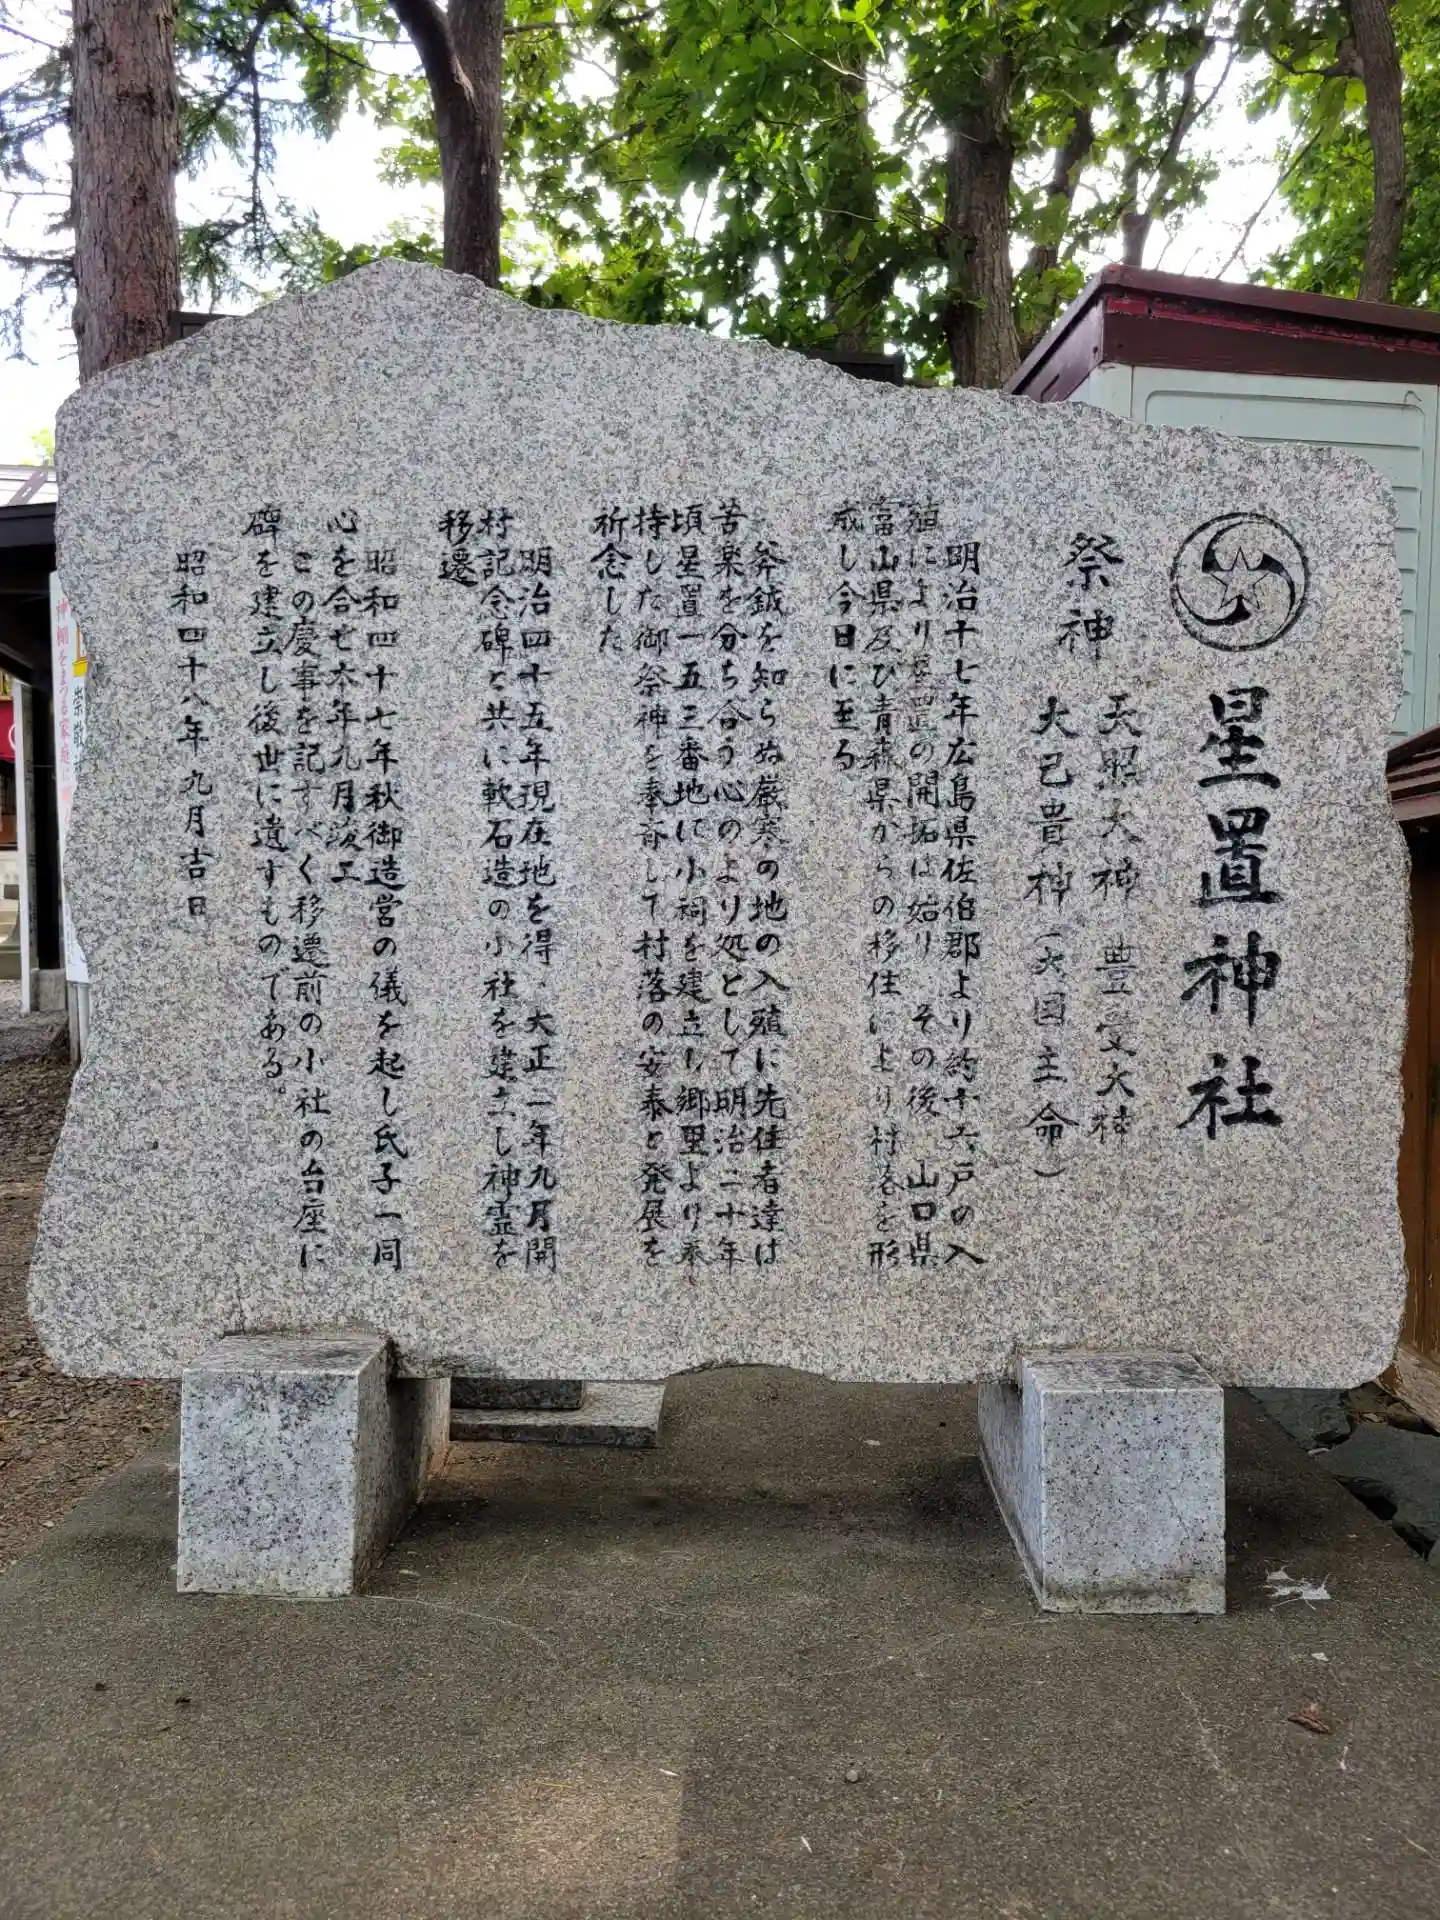 星置神社
祭神 天照大神 豊受大神
大己貴神(大国主命)
明治十七年広島県佐伯郡より約十六戸の入
殖により星置の開拓は始り、その後、山口県
富山県及び青森県からの移住により村落を形
成し今日に至る
斧鉞を知らぬ厳寒の地の入殖に先住者達は
苦楽を分ち合う心のより処として明治二十年
頃星置一五三番地に小祠を建立し郷里より奉
持した御祭神を奉斎して村落の安泰と発展を
祈念した
明治四十五年現在地を得、大正二年九月開
村記念碑と共に軟石造の小社を建立し神霊を
移遷
昭和四十七年秋御造営の儀を起し氏子一同
心を合せ本年九月竣工
この慶事を記すべく移遷前の小社の台座に
碑を建立し後世に遺すものである。
昭和四十八年九月吉日